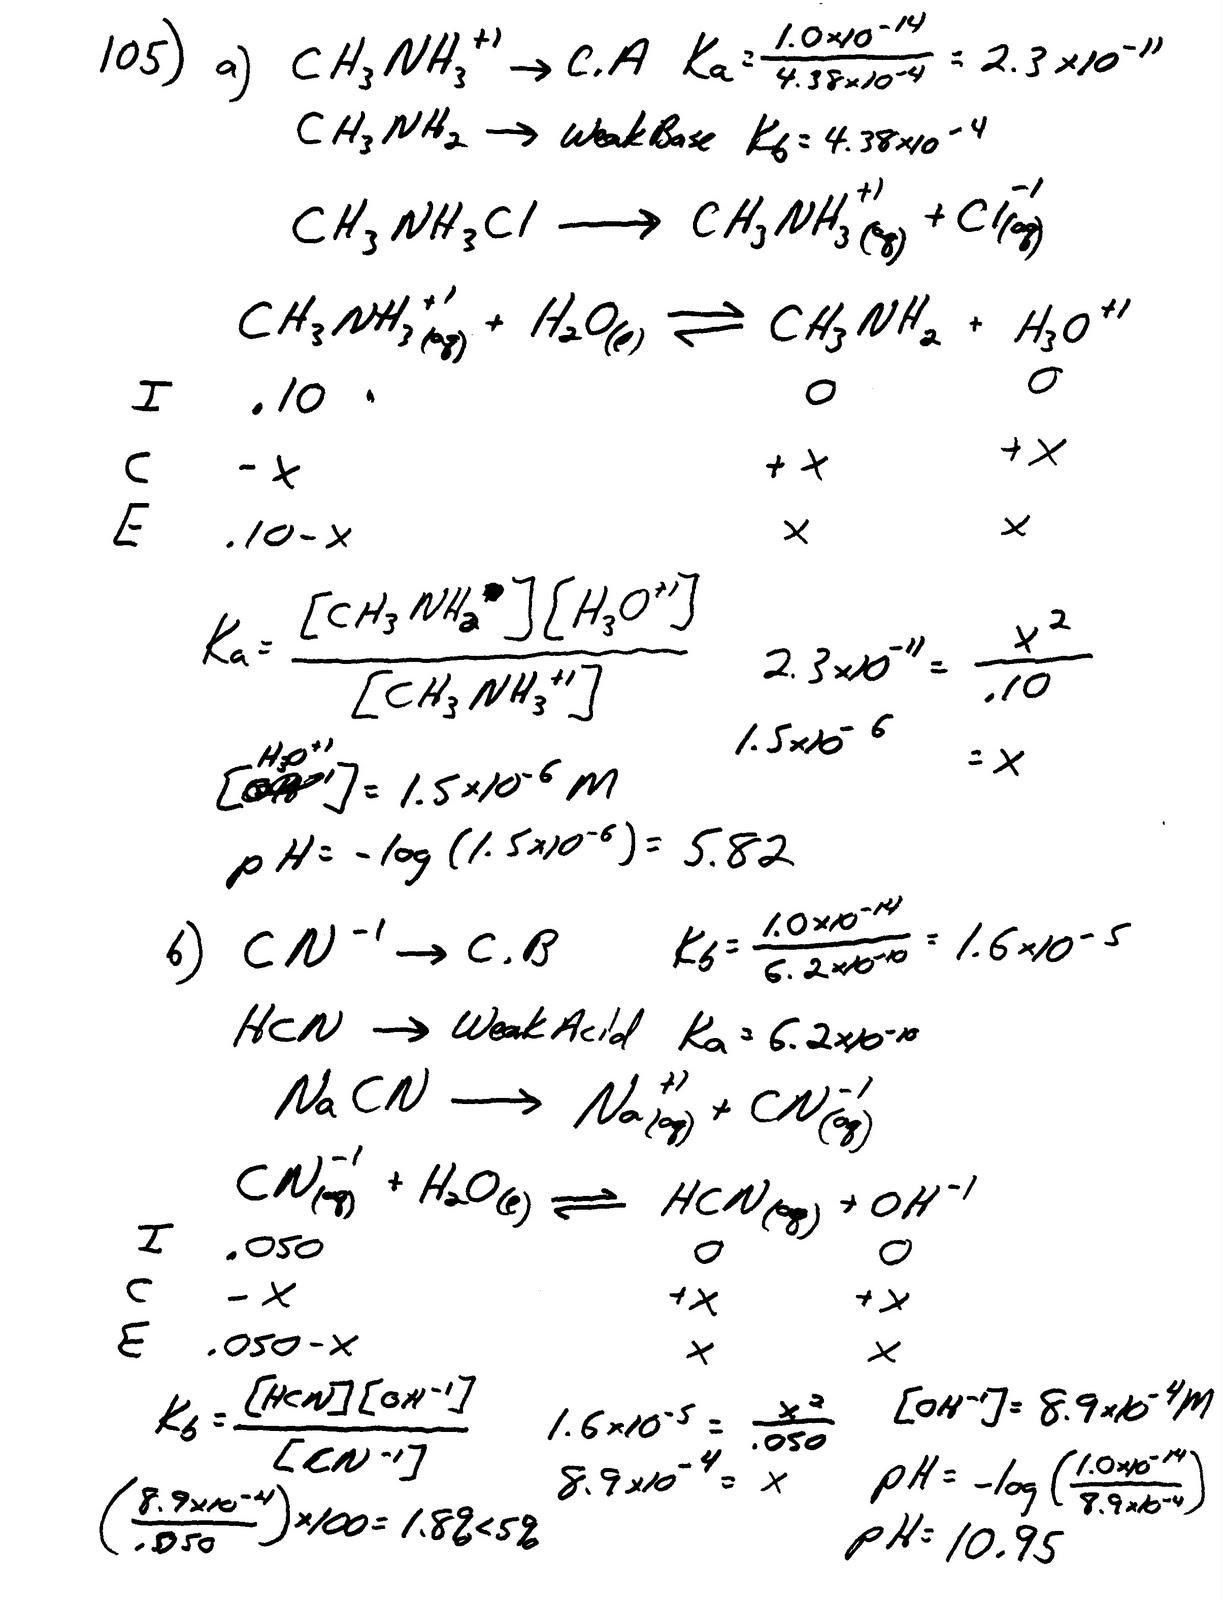 105) a) CH₃NH₃⁺¹ → C.A Ka = 1.0x10⁻¹⁴ / 4.38x10⁻⁴ = 2.3x10⁻¹¹
CH₃NH₂ → Weak Base Kb = 4.38x10⁻⁴
CH₃NH₃Cl ⟶ CH₃NH₃⁺¹(aq) + Cl⁻¹(aq)
CH₃NH₃⁺¹(aq) + H₂O(l) ⇌ CH₃NH₂ + H₃O⁺¹
I .10 0 0
C -x +x +x
E .10-x x x
Ka = [CH₃NH₂][H₃O⁺¹] / [CH₃NH₃⁺¹] 2.3x10⁻¹¹ = x² / .10
1.5x10⁻⁶ = x
[H₃O⁺¹] = 1.5x10⁻⁶ M
pH = -log(1.5x10⁻⁶) = 5.82
b) CN⁻¹ → C.B Kb = 1.0x10⁻¹⁴ / 6.2x10⁻¹⁰ = 1.6x10⁻⁵
HCN → Weak Acid Ka = 6.2x10⁻¹⁰
NaCN ⟶ Na⁺¹(aq) + CN⁻¹(aq)
CN⁻¹(aq) + H₂O(l) ⇌ HCN(aq) + OH⁻¹
I .050 0 0
C -x +x +x
E .050-x x x
Kb = [HCN][OH⁻¹] / [CN⁻¹] 1.6x10⁻⁵ = x² / .050 [OH⁻¹] = 8.9x10⁻⁴ M
8.9x10⁻⁴ = x pH = -log(1.0x10⁻¹⁴ / 8.9x10⁻⁴)
(8.9x10⁻⁴ / .050) x100 = 1.8% < 5% pH = 10.95